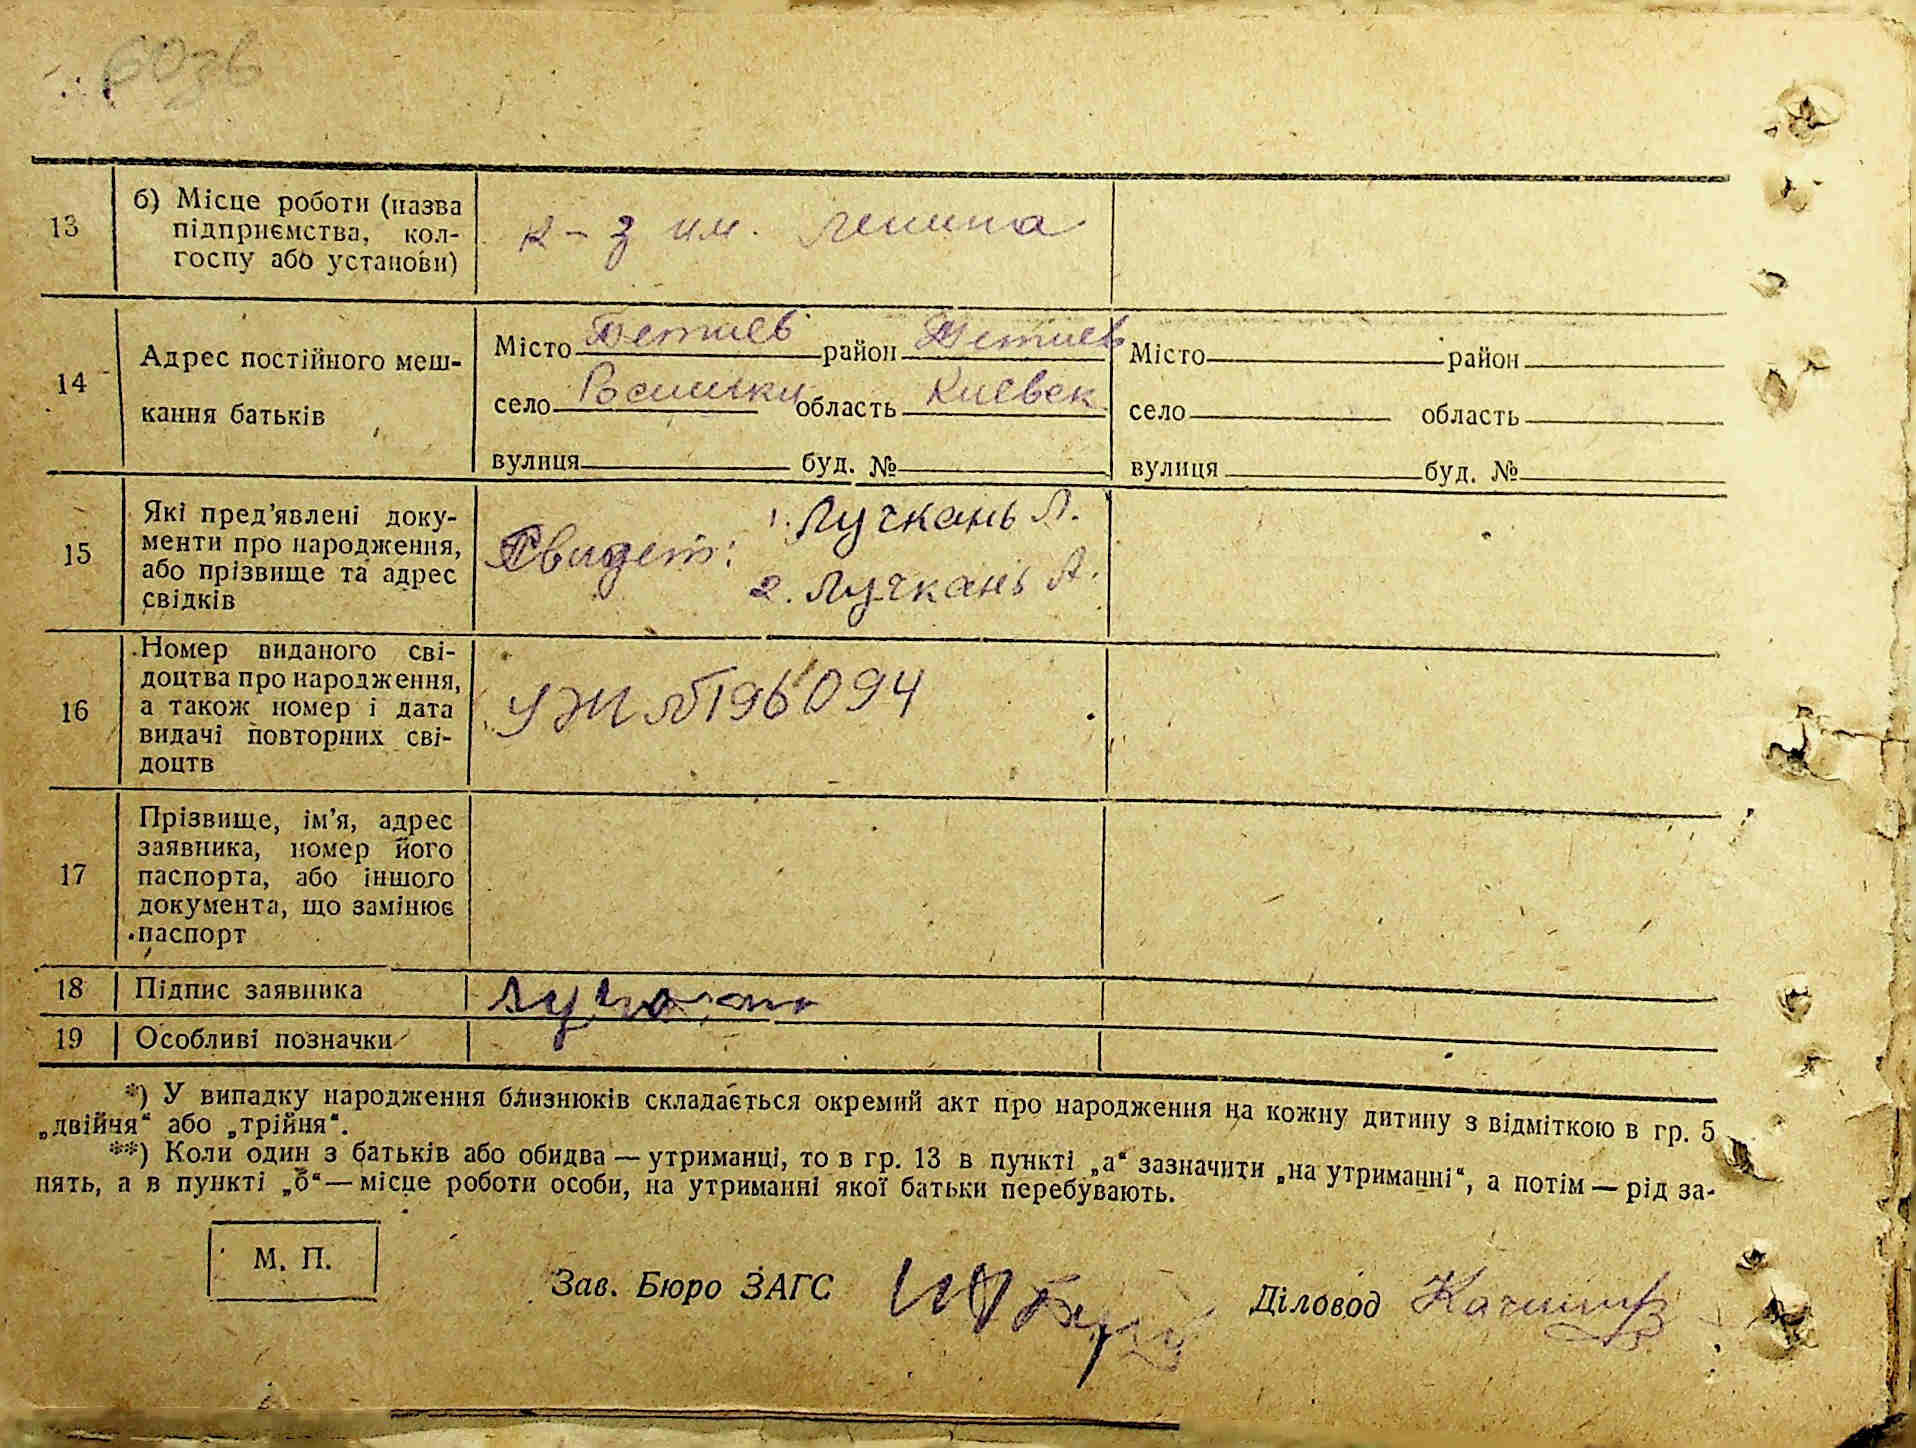 13
б) Місце роботи (назва
підприємства, кол-
госпу або установи)
к-з им. Ленина
14
Адрес постійного меш-
кання батьків
Місто Тетиев район Тетиев
село Росишки область Киевск
вулиця буд. №
Місто район
село область
вулиця буд. №
15
Які пред’явлені доку-
менти про народження,
або прізвище та адрес
свідків
Свидет: 1. Лучкань Л.
2. Лучкань А.
16
Номер виданого сві-
доцтва про народження,
а також номер і дата
видачі повторних сві-
доцтв
УЖ № 196094
17
Прізвище, ім’я, адрес
заявника, номер його
паспорта, або іншого
документа, що замінює
паспорт
18 Підпис заявника
19 Особливі позначки
*) У випадку народження близнюків складається окремий акт про народження на кожну дитину з відміткою в гр. 5
„двійня“ або „трійня“.
**) Коли один з батьків або обидва — утриманці, то в гр. 13 в пункті „а“ зазначити „на утриманні“, а потім — рід за-
нять, а в пункті „б“ — місце роботи особи, на утриманні якої батьки перебувають.
М. П.
Зав. Бюро ЗАГС
Діловод